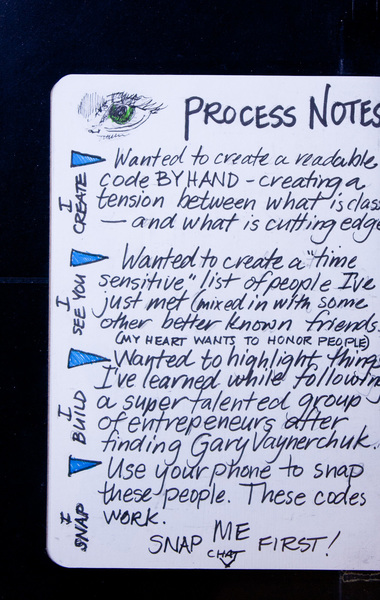 PROCESS NOTES
Wanted to create a readable
code BY HAND - creating a
tension between what is clas
— and what is cutting edge
Wanted to create a "time
sensitive" list of people I've
just met (mixed in with some
other better known friends
(MY HEART WANTS TO HONOR PEOPLE)
Wanted to highlight things
I've learned while following
a super talented group
of entrepeneurs after
finding Gary Vaynerchuk.
Use your phone to snap
these people. These codes
work.
SNAP ME FIRST!
CHAT
I CREATE
I SEE YOU
I BUILD
I SNAP